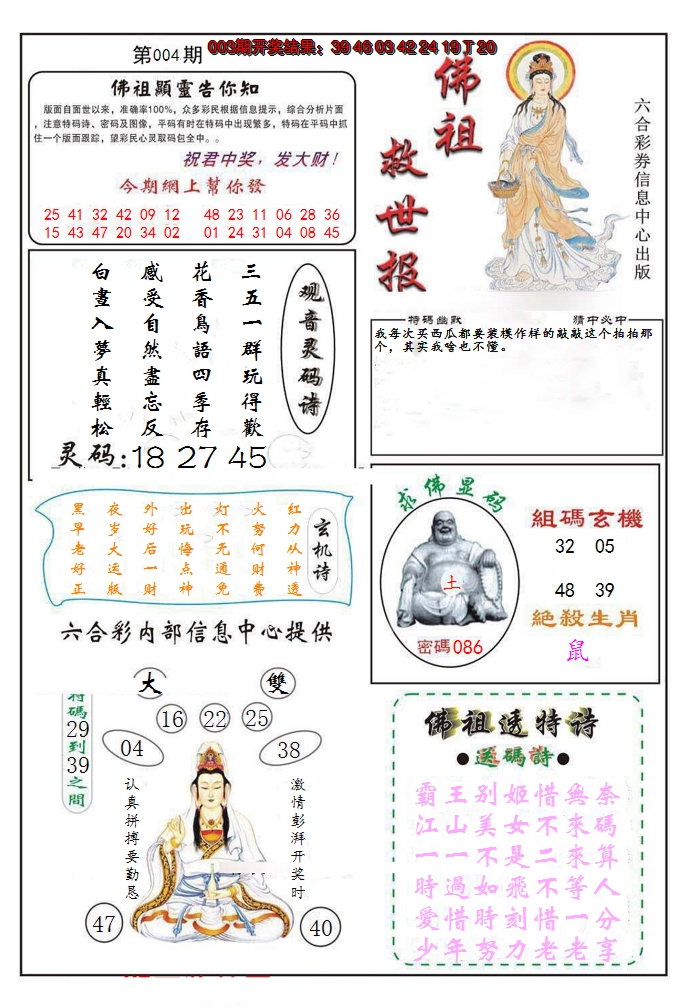 第004期
003期开奖结果：39 46 03 42 24 19 T 20
佛祖顯靈告你知
版面自面世以来，准确率100%，众多彩民根据信息提示，综合分析片面
，注意特码诗、密码及图像，平码有时在特码中出现繁多，特码在平码中抓
住一个版面跟踪，望彩民心灵取码包全中。。
祝君中奖，发大财！
今期網上幫你發
25 41 32 42 09 12 48 23 11 06 28 36
15 43 47 20 34 02 01 24 31 04 08 45
佛祖
救世报
六合彩券信息中心出版
观音灵码诗
三五一群玩得歡
花香鳥語四季存
感受自然盡忘反
白晝入夢真輕松
灵码:18 27 45
特碼幽默
猜中必中
我每次买西瓜都要装模作样的敲敲这个拍拍那
个，其实我啥也不懂。
玄机诗
红力从神透
火努何财费
灯不无通免
出玩悔点神
外好后一财
夜岁大运版
黑早老好正
六合彩内部信息中心提供
求佛显码
土
密碼086
組碼玄機
32 05
48 39
絶殺生肖
鼠
大
雙
特碼29到39之間
16 22 25
04
38
认真拼搏要勤恳
激情彭湃开奖时
47
40
佛祖透特诗
●送碼詩●
霸王别姬惜無奈
江山美女不來碼
一一不是二來算
時過如飛不等人
愛惜時刻惜一分
少年努力老老享